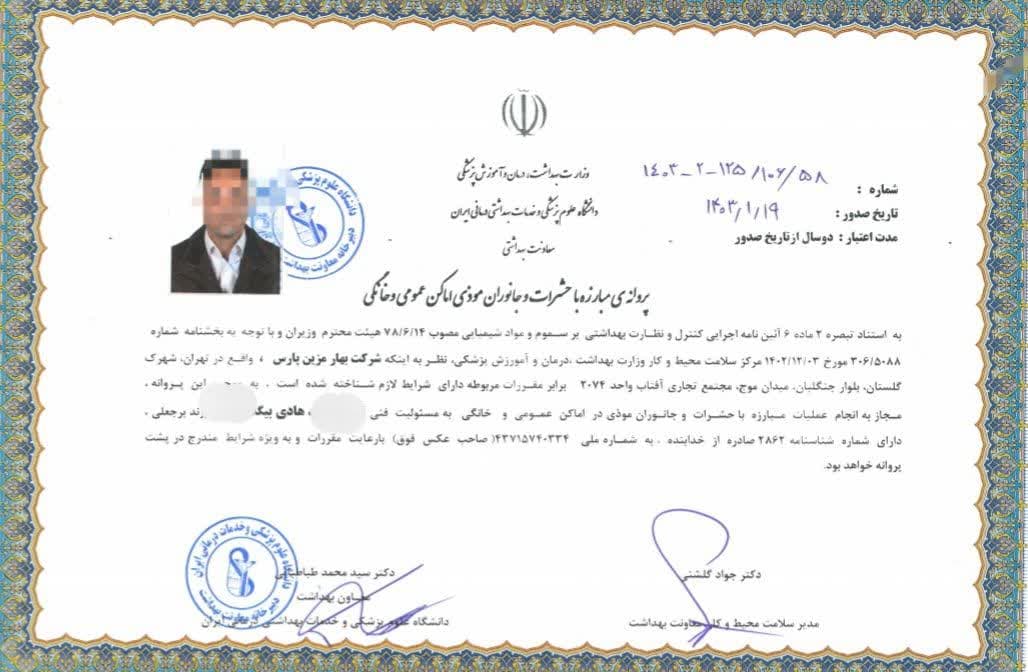 وزارت بهداشت، درمان و آموزش پزشکی
دانشگاه علوم پزشکی و خدمات بهداشتی درمانی ایران
معاونت بهداشتی
شماره : ۵۸/۱۰۶/۱۲۵-۲-۱۴۰۳
تاریخ صدور : ۱۴۰۳/۱/۱۹
مدت اعتبار : دوسال از تاریخ صدور
پروانه ی مبارزه با حشرات و جانوران موذی اماکن عمومی و خانگی
به استناد تبصره ۲ ماده ۶ آئین نامه اجرایی کنترل و نظارت بهداشتی بر سموم و مواد شیمیایی مصوب ۷۸/۶/۱۴ هیئت محترم وزیران و با توجه به بخشنامه شماره
۳۰۶/۵۰۸۸ مورخ ۱۴۰۲/۱۲/۰۳ مرکز سلامت محیط و کار وزارت بهداشت ،درمان و آموزش پزشکی، نظر به اینکه شرکت بهار مزین پارس ، واقع در تهران، شهرک
گلستان، بلوار جنگلبان، میدان موج، مجتمع تجاری آفتاب واحد ۲۰۷۴ برابر مقررات مربوطه دارای شرایط لازم شناخته شده است . به این پروانه ،
مجاز به انجام عملیات مبارزه با حشرات و جانوران موذی در اماکن عمومی و خانگی به مسئولیت فنی هادی بیگ برجعلی ،
دارای شماره شناسنامه ۲۸۶۲ صادره از خدابنده ، به شماره ملی ۴۳۷۱۵۷۴۰۳۳۴( صاحب عکس فوق) بارعایت مقررات و به ویژه شرایط مندرج در پشت
پروانه خواهد بود.
دکتر جواد گلشنی
مدیر سلامت محیط و کار معاونت بهداشت
دکتر سید محمد طباطبایی
معاون بهداشت
دانشگاه علوم پزشکی و خدمات بهداشتی درمانی ایران
دانشگاه علوم پزشکی
دبیرخانه معاونت بهداشت
دانشگاه علوم پزشکی و خدمات درمانی ایران
دبیرخانه معاونت بهداشت